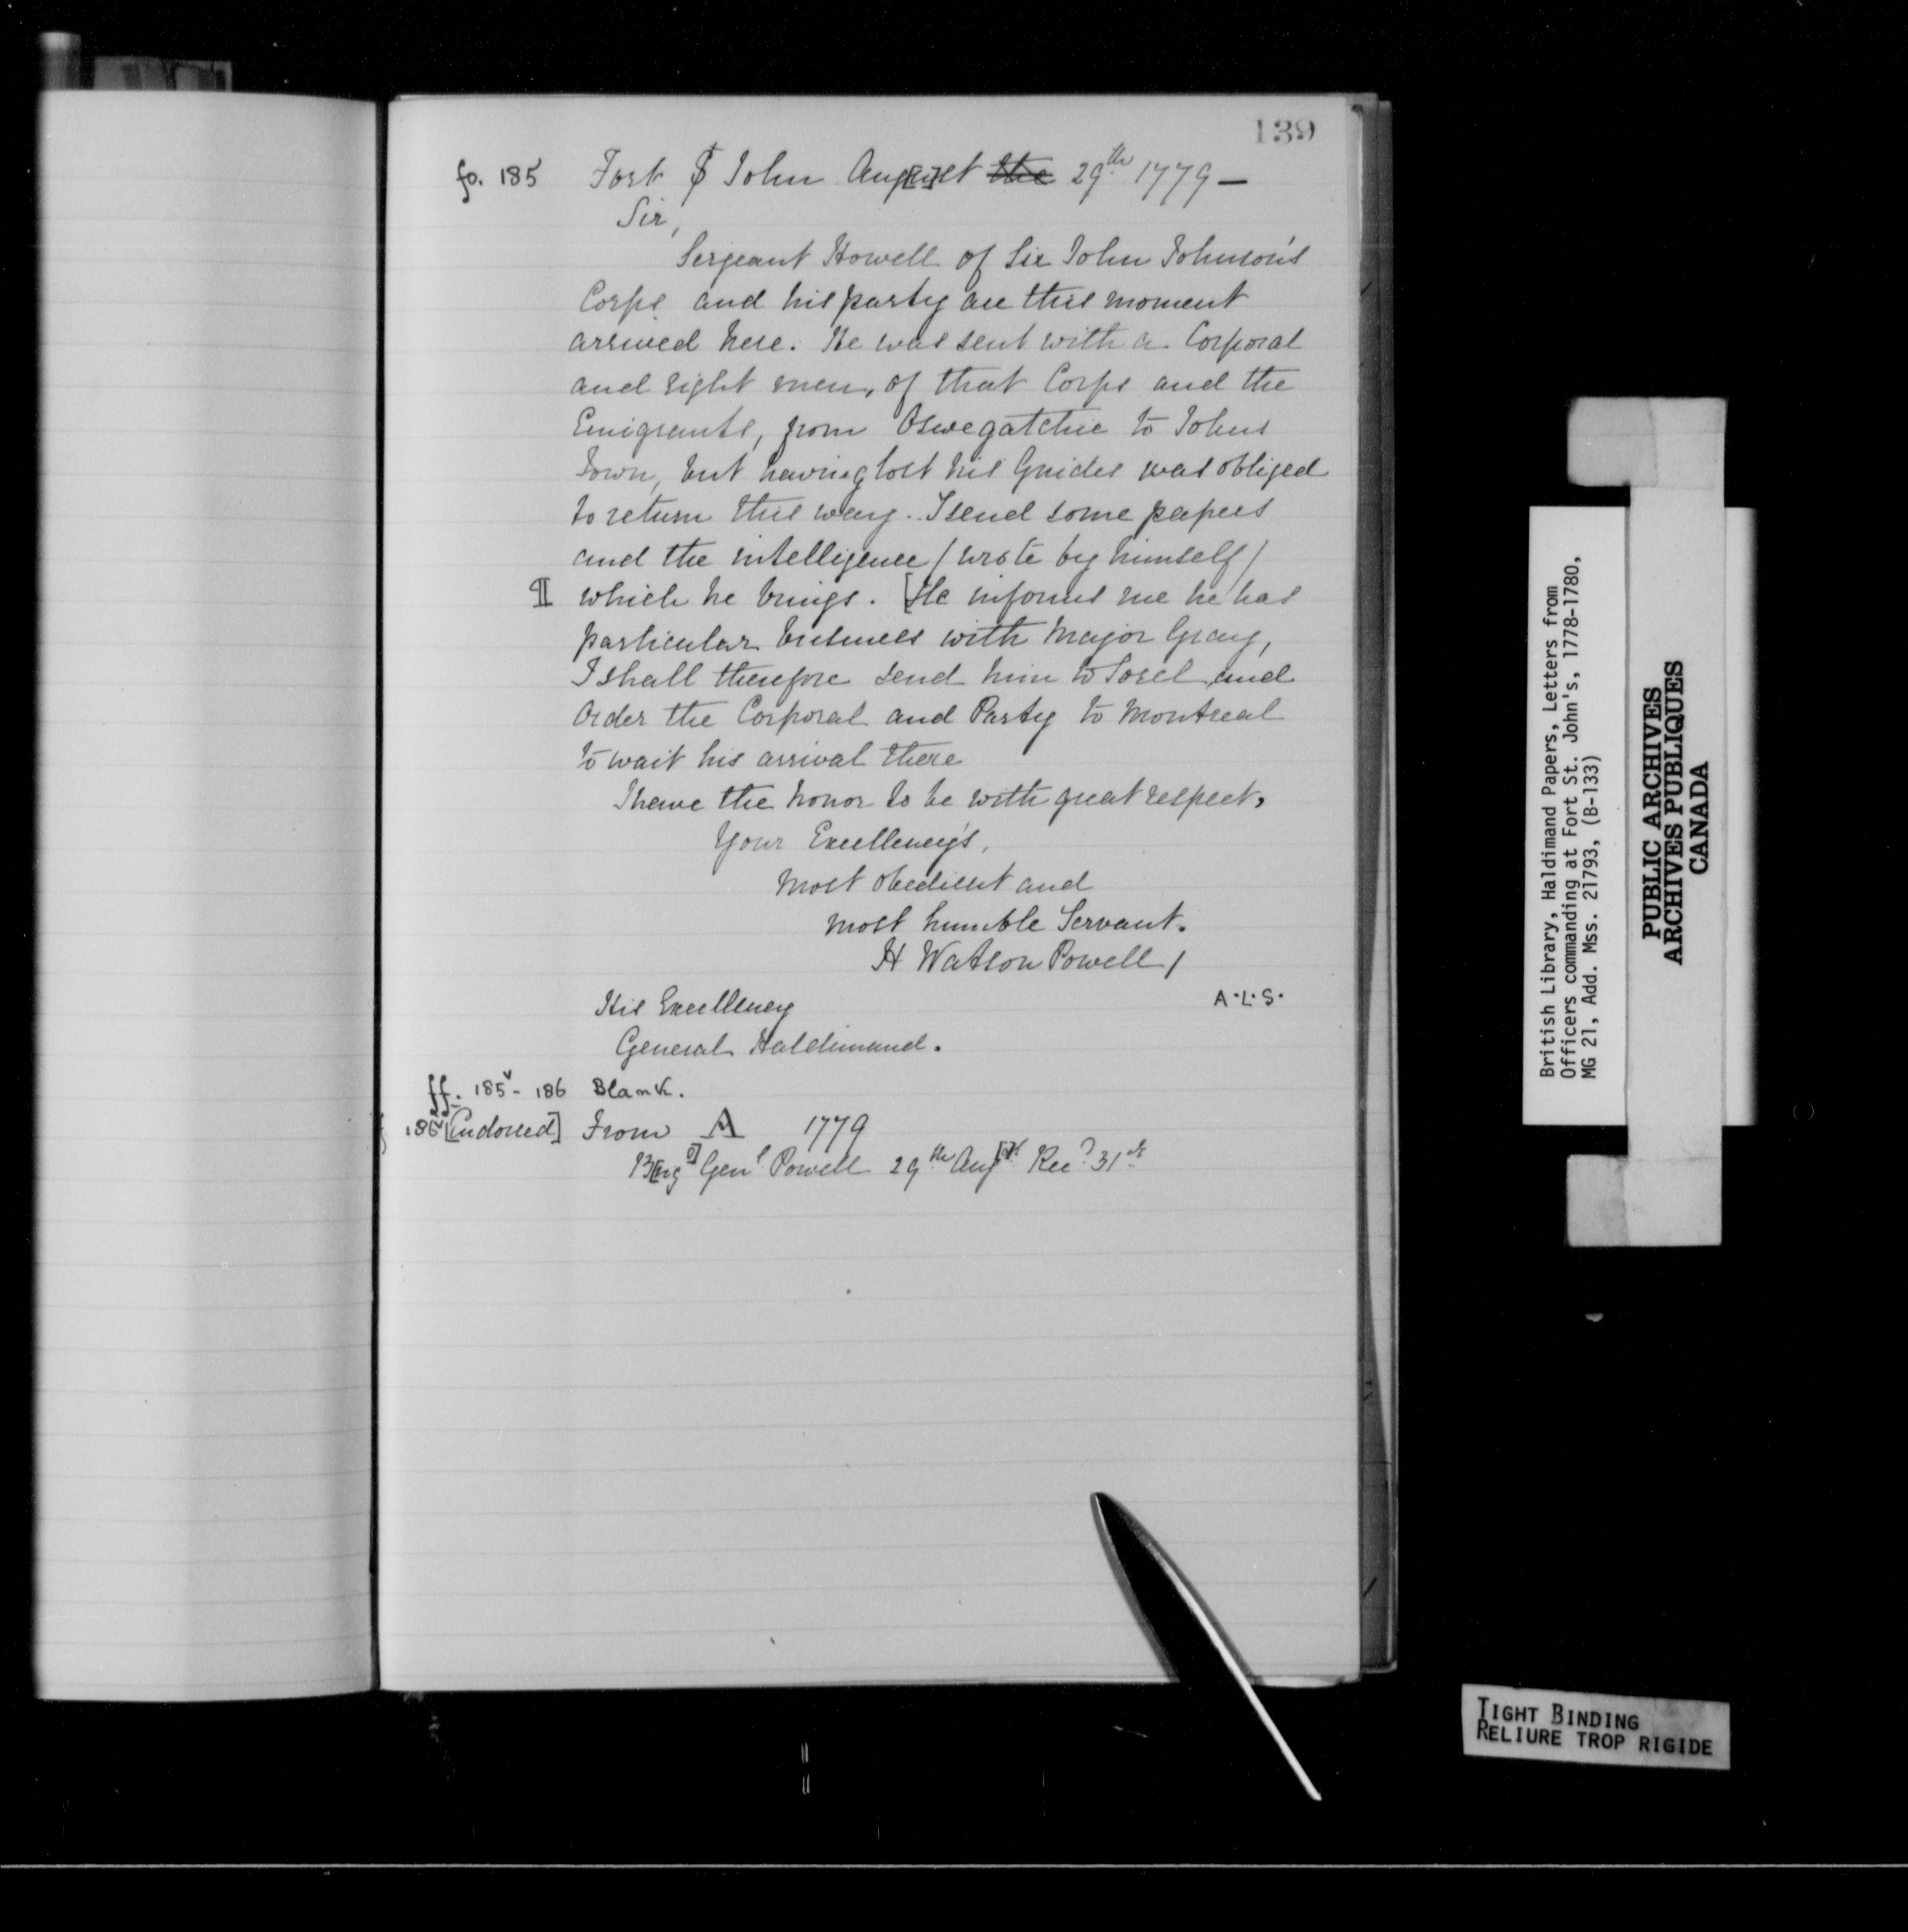 139
fo. 185 Fort St John Aug[us]t the 29th 1779 —
Sir,
Sergeant Howell of Sir John Johnson's
Corps and his party are this moment
arrived here. He was sent with a Corporal
and eight men, of that Corps and the
Emigrants, from Oswegatchie to Johns
Town, but having lost his Guides was obliged
to return this way. I send some papers
and the intelligence (wrote by himself)
¶ which he brings. [He informs me he has
particular business with Major Gray,
I shall therefore send him to Sorel and
order the Corporal and Party to Montreal
to wait his arrival there
I have the honor to be with great respect,
Your Excellency's,
most obedient and
most humble Servant.
H Watson Powell /
A.L.S.
His Excellency
General Haldimand.
ff. 185v - 186 Blank.
186v [Endorsed] From A 1779
B[rig[r] Genl Powell 29th Aug[st] Recd 31st
British Library, Haldimand Papers, Letters from
Officers commanding at Fort St. John's, 1778-1780,
MG 21, Add. Mss. 21793, (B-133)
PUBLIC ARCHIVES
ARCHIVES PUBLIQUES
CANADA
TIGHT BINDING
RELIURE TROP RIGIDE